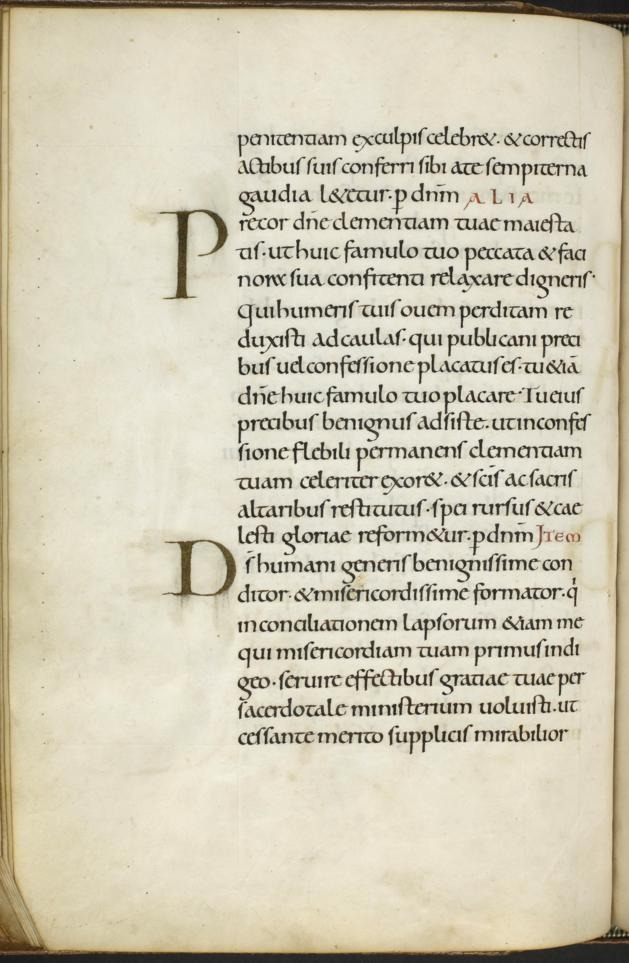 penitentiam exculpis celebr&. & correctis
actibus suis conferri sibi ate sempiterna
gaudia l&etur. p̲ dn̄m ALIA
Precor dn̄e clementiam tuae maiesta
tis. ut huic famulo tuo peccata & faci
nora sua confitenti relaxare digneris.
qui humeris tuis ouem perditam re
duxisti ad caulas. qui publicani preci
bus uel confessione placatus es. tu &iā
dn̄e huic famulo tuo placare. Tu eius
precibus benignus adsiste. ut in confes
sione flebili permanens clementiam
tuam celeriter exor&. & sc̄is ac sacris
altaribus restitutus. spei rursus & cae
lesti gloriae reform&ur. p̲ dn̄m ITEM
Ds̄ humani generis benignissime con
ditor. & misericordissime formator. q
in conciliationem lapsorum &iam me
qui misericordiam tuam primus indi
geo. seruire effectibus gratiae tuae per
sacerdotale ministerium uoluisti. ut
cessante merito supplicis mirabilior